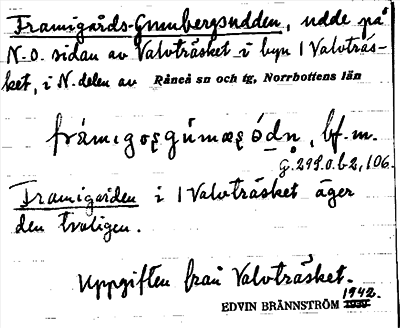 Framigårds-Gumbergsudden, udde på
N.O. sidan av Valvträsket i byn 1 Valvträs-
ket, i N.delen av Råneå sn och tg, Norrbottens län
bf. m.
G. 299.0.b2, 106.
Framigården i 1 Valvträsket äger
den troligen.
Uppgiften från Valvträsket.
1942.
EDVIN BRÄNNSTRÖM 1939